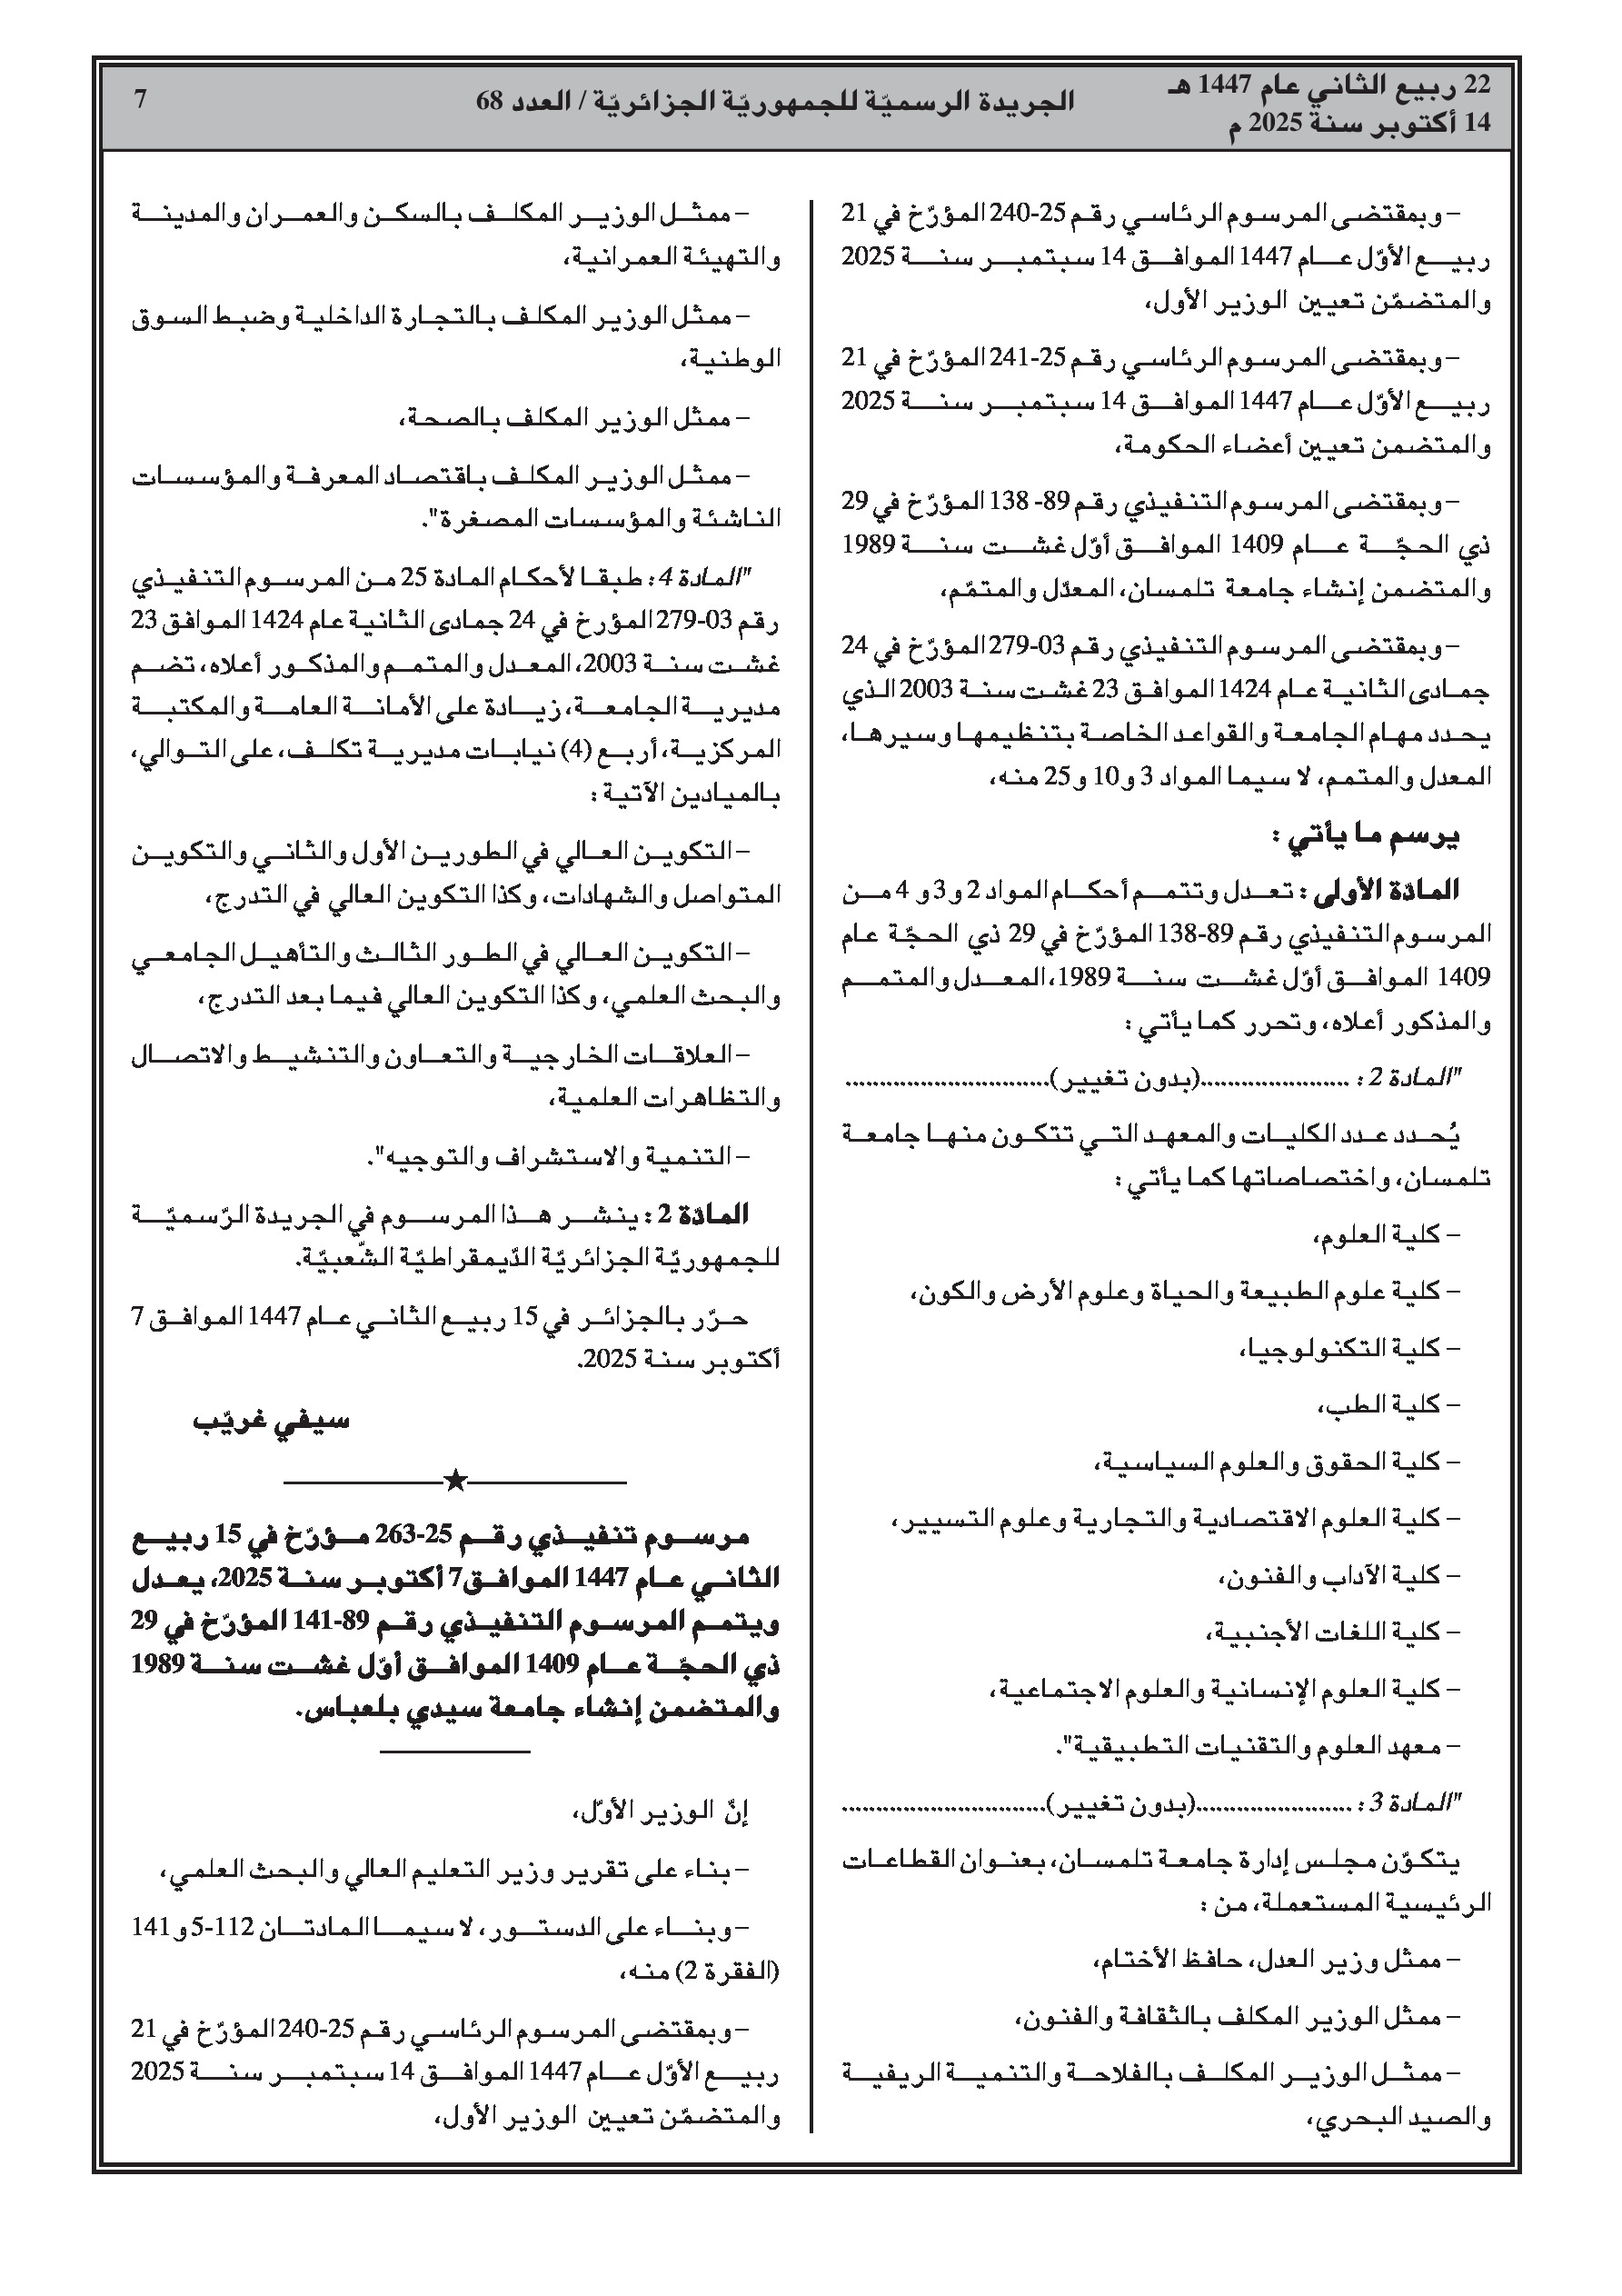 22 ربيع الثاني عام 1447 هـ
14 أكتوبر سنة 2025 م
الجريدة الرسميّة للجمهوريّة الجزائريّة / العدد 68
7
– وبمقتضى المرسوم الرئاسي رقم 25-240 المؤرّخ في 21
ربيع الأوّل عام 1447 الموافق 14 سبتمبر سنة 2025
والمتضمّن تعيين الوزير الأول،
– وبمقتضى المرسوم الرئاسي رقم 25-241 المؤرّخ في 21
ربيع الأوّل عام 1447 الموافق 14 سبتمبر سنة 2025
والمتضمن تعيين أعضاء الحكومة،
– وبمقتضى المرسوم التنفيذي رقم 89- 138 المؤرّخ في 29
ذي الحجّة عام 1409 الموافق أوّل غشت سنة 1989
والمتضمن إنشاء جامعة تلمسان، المعدّل والمتمّم،
– وبمقتضى المرسوم التنفيذي رقم 03-279 المؤرّخ في 24
جمادى الثانية عام 1424 الموافق 23 غشت سنة 2003 الذي
يحدد مهام الجامعة والقواعد الخاصة بتنظيمها وسيرها،
المعدل والمتمم، لا سيما المواد 3 و10 و25 منه،
يرسم ما يأتي :
المادّة الأولى : تعدل وتتمم أحكام المواد 2 و3 و 4 من
المرسوم التنفيذي رقم 89-138 المؤرّخ في 29 ذي الحجّة عام
1409 الموافق أوّل غشت سنة 1989، المعدل والمتمم
والمذكور أعلاه، وتحرر كما يأتي :
"المادة 2 : ......................(بدون تغيير)..............................
يُحدد عدد الكليات والمعهد التي تتكون منها جامعة
تلمسان، واختصاصاتها كما يأتي :
– كلية العلوم،
– كلية علوم الطبيعة والحياة وعلوم الأرض والكون،
– كلية التكنولوجيا،
– كلية الطب،
– كلية الحقوق والعلوم السياسية،
– كلية العلوم الاقتصادية والتجارية وعلوم التسيير،
– كلية الآداب والفنون،
– كلية اللغات الأجنبية،
– كلية العلوم الإنسانية والعلوم الاجتماعية،
– معهد العلوم والتقنيات التطبيقية".
"المادة 3 : .......................(بدون تغيير)..............................
يتكوّن مجلس إدارة جامعة تلمسان، بعنوان القطاعات
الرئيسية المستعملة، من :
– ممثل وزير العدل، حافظ الأختام،
– ممثل الوزير المكلف بالثقافة والفنون،
– ممثل الوزير المكلف بالفلاحة والتنمية الريفية
والصيد البحري،
– ممثل الوزير المكلف بالسكن والعمران والمدينة
والتهيئة العمرانية،
– ممثل الوزير المكلف بالتجارة الداخلية وضبط السوق
الوطنية،
– ممثل الوزير المكلف بالصحة،
– ممثل الوزير المكلف باقتصاد المعرفة والمؤسسات
الناشئة والمؤسسات المصغرة".
"المادة 4 : طبقا لأحكام المادة 25 من المرسوم التنفيذي
رقم 03-279 المؤرخ في 24 جمادى الثانية عام 1424 الموافق 23
غشت سنة 2003، المعدل والمتمم والمذكور أعلاه، تضم
مديرية الجامعة، زيادة على الأمانة العامة والمكتبة
المركزية، أربع (4) نيابات مديرية تكلف، على التوالي،
بالميادين الآتية :
– التكوين العالي في الطورين الأول والثاني والتكوين
المتواصل والشهادات، وكذا التكوين العالي في التدرج،
– التكوين العالي في الطور الثالث والتأهيل الجامعي
والبحث العلمي، وكذا التكوين العالي فيما بعد التدرج،
– العلاقات الخارجية والتعاون والتنشيط والاتصال
والتظاهرات العلمية،
– التنمية والاستشراف والتوجيه".
المادّة 2 : ينشر هذا المرسوم في الجريدة الرّسميّة
للجمهوريّة الجزائريّة الدّيمقراطيّة الشّعبيّة.
حرّر بالجزائر في 15 ربيع الثاني عام 1447 الموافق 7
أكتوبر سنة 2025.
سيفي غريّب
مرسوم تنفيذي رقم 25-263 مؤرّخ في 15 ربيع
الثاني عام 1447 الموافق7 أكتوبر سنة 2025، يعدل
ويتمم المرسوم التنفيذي رقم 89-141 المؤرّخ في 29
ذي الحجّة عام 1409 الموافق أوّل غشت سنة 1989
والمتضمن إنشاء جامعة سيدي بلعباس.
إنّ الوزير الأوّل،
– بناء على تقرير وزير التعليم العالي والبحث العلمي،
– وبناء على الدستور، لا سيما المادتان 112-5 و141
(الفقرة 2) منه،
– وبمقتضى المرسوم الرئاسي رقم 25-240 المؤرّخ في 21
ربيع الأوّل عام 1447 الموافق 14 سبتمبر سنة 2025
والمتضمّن تعيين الوزير الأول،